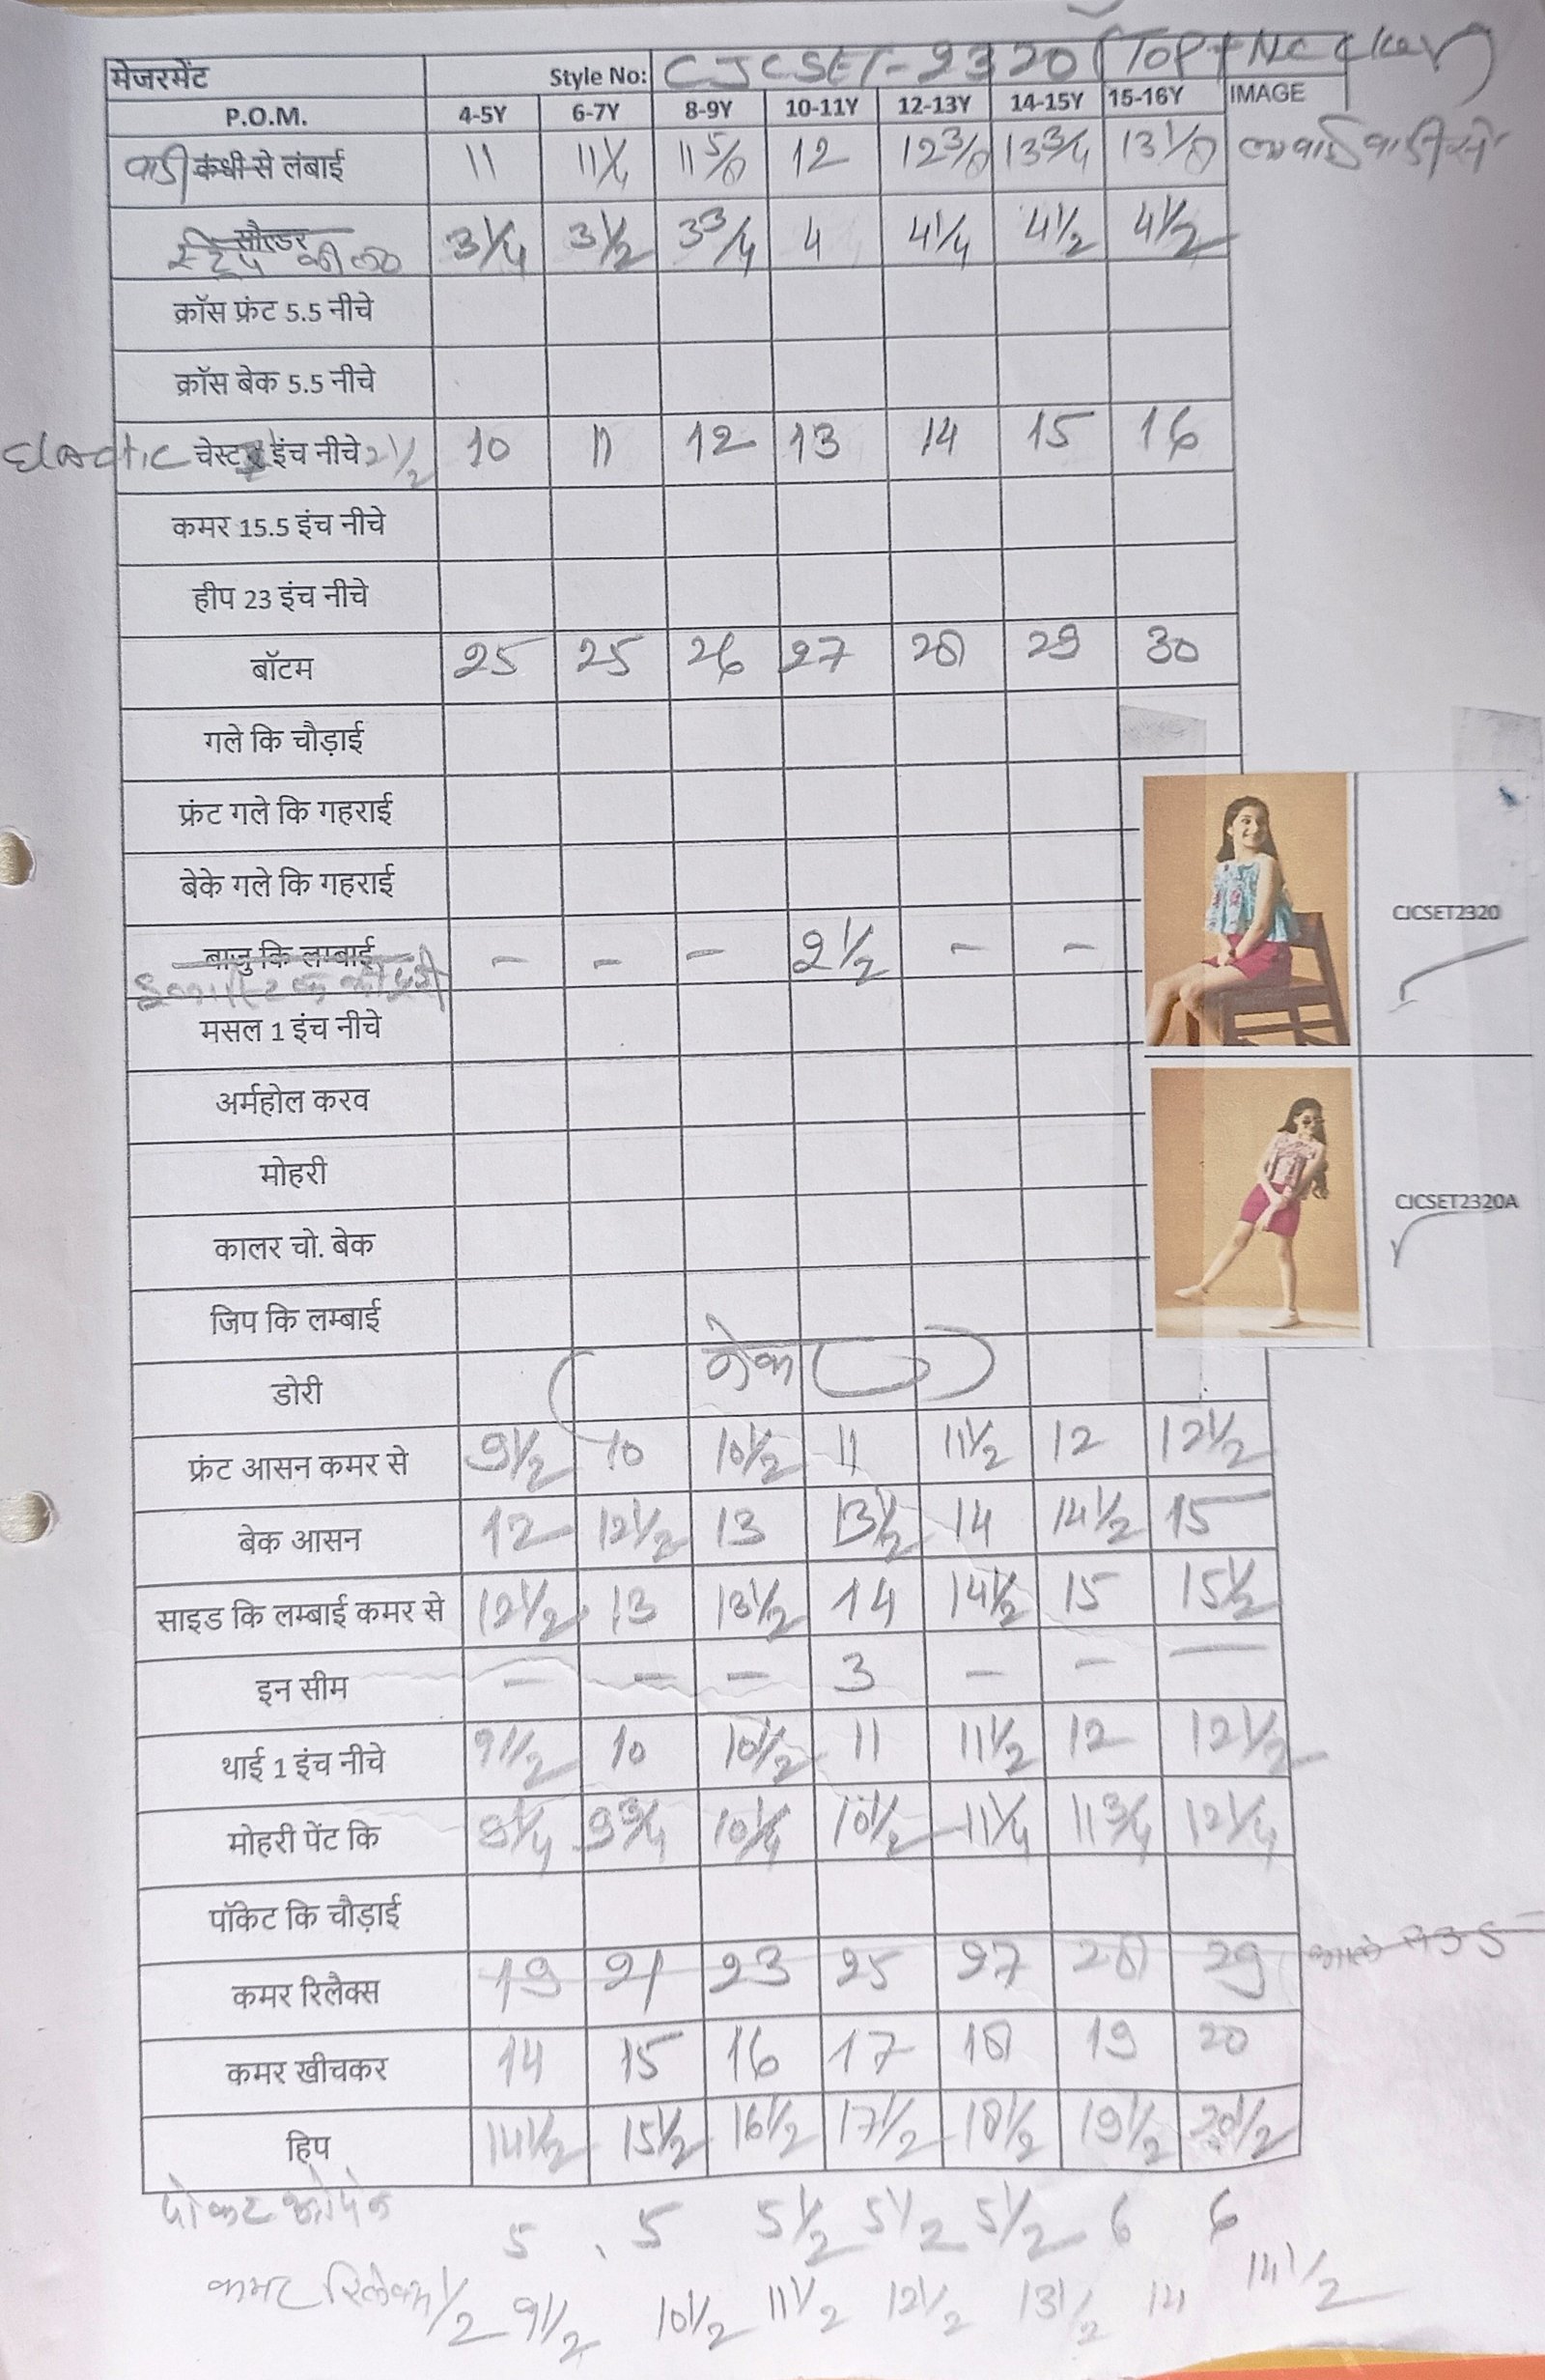 मेजरमेंट Style No: CJCSET-2320 (TOP + Necker)
P.O.M. 4-5Y 6-7Y 8-9Y 10-11Y 12-13Y 14-15Y 15-16Y IMAGE
वाडी कंधी से लंबाई 11 11¼ 11 5/8 12 12 3/8 13 3/4 13 1/8 लम्बाई वाडी से
सौल्डर स्ट्रेप की ल० 3¼ 3½ 3¾ 4 4¼ 4½ 4½
क्रॉस फ्रंट 5.5 नीचे
क्रॉस बेक 5.5 नीचे
Elastic चेस्ट इंच नीचे 2½ 10 11 12 13 14 15 16
कमर 15.5 इंच नीचे
हीप 23 इंच नीचे
बॉटम 25 25 26 27 28 29 30
गले कि चौड़ाई
फ्रंट गले कि गहराई
बेके गले कि गहराई
CJCSET2320
बाजु कि लम्बाई - - - 2½ - -
मसल 1 इंच नीचे
अर्महोल करव
मोहरी
CJCSET2320A
कालर चो. बेक
जिप कि लम्बाई
डोरी
फ्रंट आसन कमर से 9½ 10 10½ 11 11½ 12 12½
बेक आसन 12 12½ 13 13½ 14 14½ 15
साइड कि लम्बाई कमर से 12½ 13 13½ 14 14½ 15 15½
इन सीम - - - 3 - - -
थाई 1 इंच नीचे 9½ 10 10½ 11 11½ 12 12½
मोहरी पेंट कि 9¼ 9¾ 10¼ 10½ 11¼ 11¾ 12¼
पॉकेट कि चौड़ाई
कमर रिलैक्स 19 21 23 25 27 28 29
कमर खीचकर 14 15 16 17 18 19 20
हिप 14½ 15½ 16½ 17½ 18½ 19½ 20½
पोकट ओपन 5 5 5½ 5½ 5½ 6 6
कमर रिलेक्स ½ 9½ 10½ 11½ 12½ 13½ 14 14½